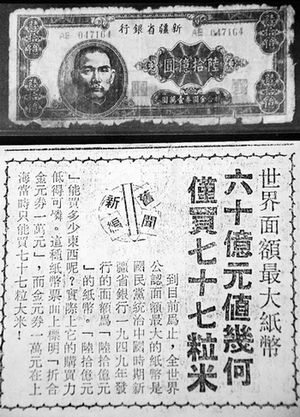 新疆省銀行
AE 047164
AE 047164
陸拾億圓
折合金圓券壹萬圓
世界面額最大紙幣
六十億元值幾何
僅買七十七粒米
舊聞
新編
到目前爲止，全世界
公認面額最大的紙幣是
國民黨統治中國時期新
疆省銀行一九四九年發
行的面額爲「陸拾億元
」的紙幣。「陸拾億元
」能買多少東西呢？實際上它的購買力
低得可憐。這種紙幣票面上標明「折合
金元券一萬元」，而金元券一萬元在上
海當時只能買七十七粒大米！